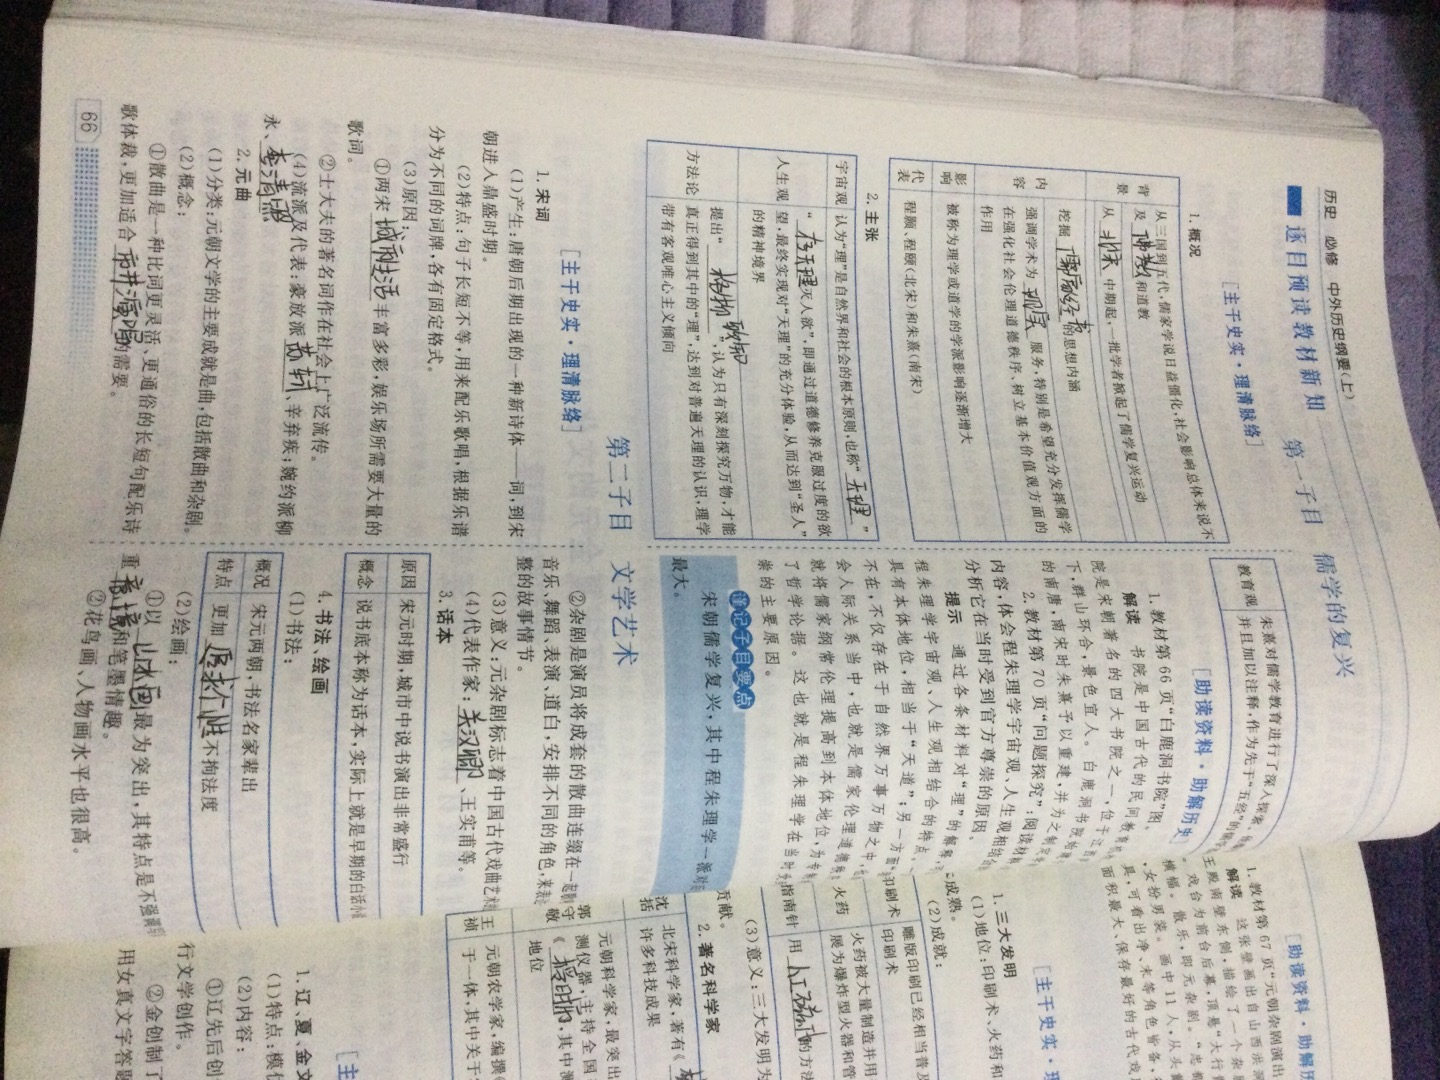 历史 必修 中外历史纲要(上)
逐目预读教材新知
第一子目 儒学的复兴
[主干史实·理清脉络]
1.概况
背景
从三国到五代,儒家学说日益僵化,社会影响总体来说不
及佛教和道教
从北宋中期起,一批学者掀起了儒学复兴运动
内容
挖掘儒家经书的思想内涵
强调学术为现实服务,特别是希望充分发挥儒学
在强化社会伦理道德秩序、树立基本价值观方面的
作用
影响
被称为理学或道学的学派影响逐渐增大
代表
程颢、程颐(北宋)和朱熹(南宋)
2.主张
宇宙观 认为“理”是自然界和社会的根本原则,也称“天理”
人生观
“存天理灭人欲”,即通过道德修养克服过度的欲
望,最终实现对“天理”的充分体验,从而达到“圣人”
的精神境界
方法论
提出“格物致知”,认为只有深刻探究万物,才能
真正得到其中的“理”,达到对普遍天理的认识,理学
带有客观唯心主义倾向
教育观
朱熹对儒学教育进行了深入探索,
并且加以注释,作为先于“五经”的
[助读资料·助解历史]
1.教材第66页“白鹿洞书院”图。
解读 书院是中国古代的民间教育
院是宋朝著名的四大书院之一,位于江西
下,群山环合,景色宜人。白鹿洞书院始建
的南唐,南宋时朱熹予以重建,并为之制定
2.教材第70页“问题探究”,阅读材料
内容,体会程朱理学宇宙观、人生观相结合
分析它在当时受到官方尊崇的原因。
提示 通过各条材料对“理”的解释,
程朱理学宇宙观、人生观相结合的特点,
具有本体地位,相当于“天道”;另一方面
不在,不仅存在于自然界万事万物之中,
会人际关系当中,也就是儒家伦理道德
就将儒家纲常伦理提高到本体地位,为专制
了哲学论据。这也就是程朱理学在当时
崇的主要原因。
笔记子目要点
宋朝儒学复兴,其中程朱理学一派
最大。
第二子目 文学艺术
[主干史实·理清脉络]
1.宋词
(1)产生:唐朝后期出现的一种新诗体——词,到宋
朝进入鼎盛时期。
(2)特点:句子长短不等,用来配乐歌唱,根据乐谱
分为不同的词牌,各有固定格式。
(3)原因:
①两宋城市生活丰富多彩,娱乐场所需要大量的
歌词。
②士大夫的著名词作在社会上广泛流传。
(4)流派及代表:豪放派苏轼、辛弃疾;婉约派柳
永、李清照
2.元曲
(1)分类:元朝文学的主要成就是曲,包括散曲和杂剧。
(2)概念:
①散曲是一种比词更灵活、更通俗的长短句配乐诗
歌体裁,更加适合市井演唱的需要。
②杂剧是演员将成套的散曲连缀在一起
音乐、舞蹈、表演、道白,安排不同的角色,来表
整的故事情节。
(3)意义:元杂剧标志着中国古代戏曲艺术
(4)代表作家:关汉卿、王实甫等。
3.话本
原因 宋元时期,城市中说书演出非常盛行
概念 说书底本称为话本,实际上就是早期的白话小
4.书法、绘画
(1)书法:
概况 宋元两朝,书法名家辈出
特点 更加追求个性不拘法度
(2)绘画:
①以山水画最为突出,其特点是不强调
重意境和笔墨情趣。
②花鸟画、人物画水平也很高。
66
[助读资料·助解历
1.教材第67页“元朝杂剧演出
解读 这张壁画出自山西洪洞
王殿南壁东侧,描绘了一个杂剧
戏台为前台后幕,顶悬“大行
横幅。散乐,即元杂剧。“忠都
女扮男装。画中11人,从头
具,可看出净、末等角色皆备,
面积最大、保存最好的古代戏
[主干史实·理
1.三大发明
(1)地位:印刷术、火药和
成熟。
(2)成就:
印刷术
雕版印刷已经相当普及
印刷术
火药
火药被大量制造并用
展为爆炸型火器和管
指南针 用人工磁化的方法
(3)意义:三大发明为
贡献。
2.著名科学家
沈括
北宋科学家,著有《
许多科技成果
郭守敬
元朝科学家,最突出
测仪器,主持全国
《授时历》,其中测
地位
王祯
元朝农学家,编撰
于一体,其中关于
[主
1.辽、夏、金文
(1)特点:模仿
(2)内容:
①辽先后创
行文学创作。
②金创制了
用女真文字答题